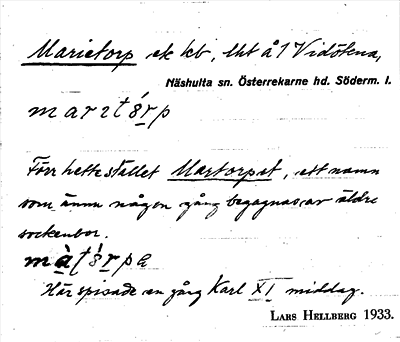 Marietorp ek kb, lht å 1 Vidökna,
Näshulta sn. Österrekarne hd. Söderm. l.
Förr hette stället Martorpet, ett namn
som ännu någon gång begagnas av äldre
sockenbor.
Här spisade en gång Karl XI middag.
LARS HELLBERG 1933.